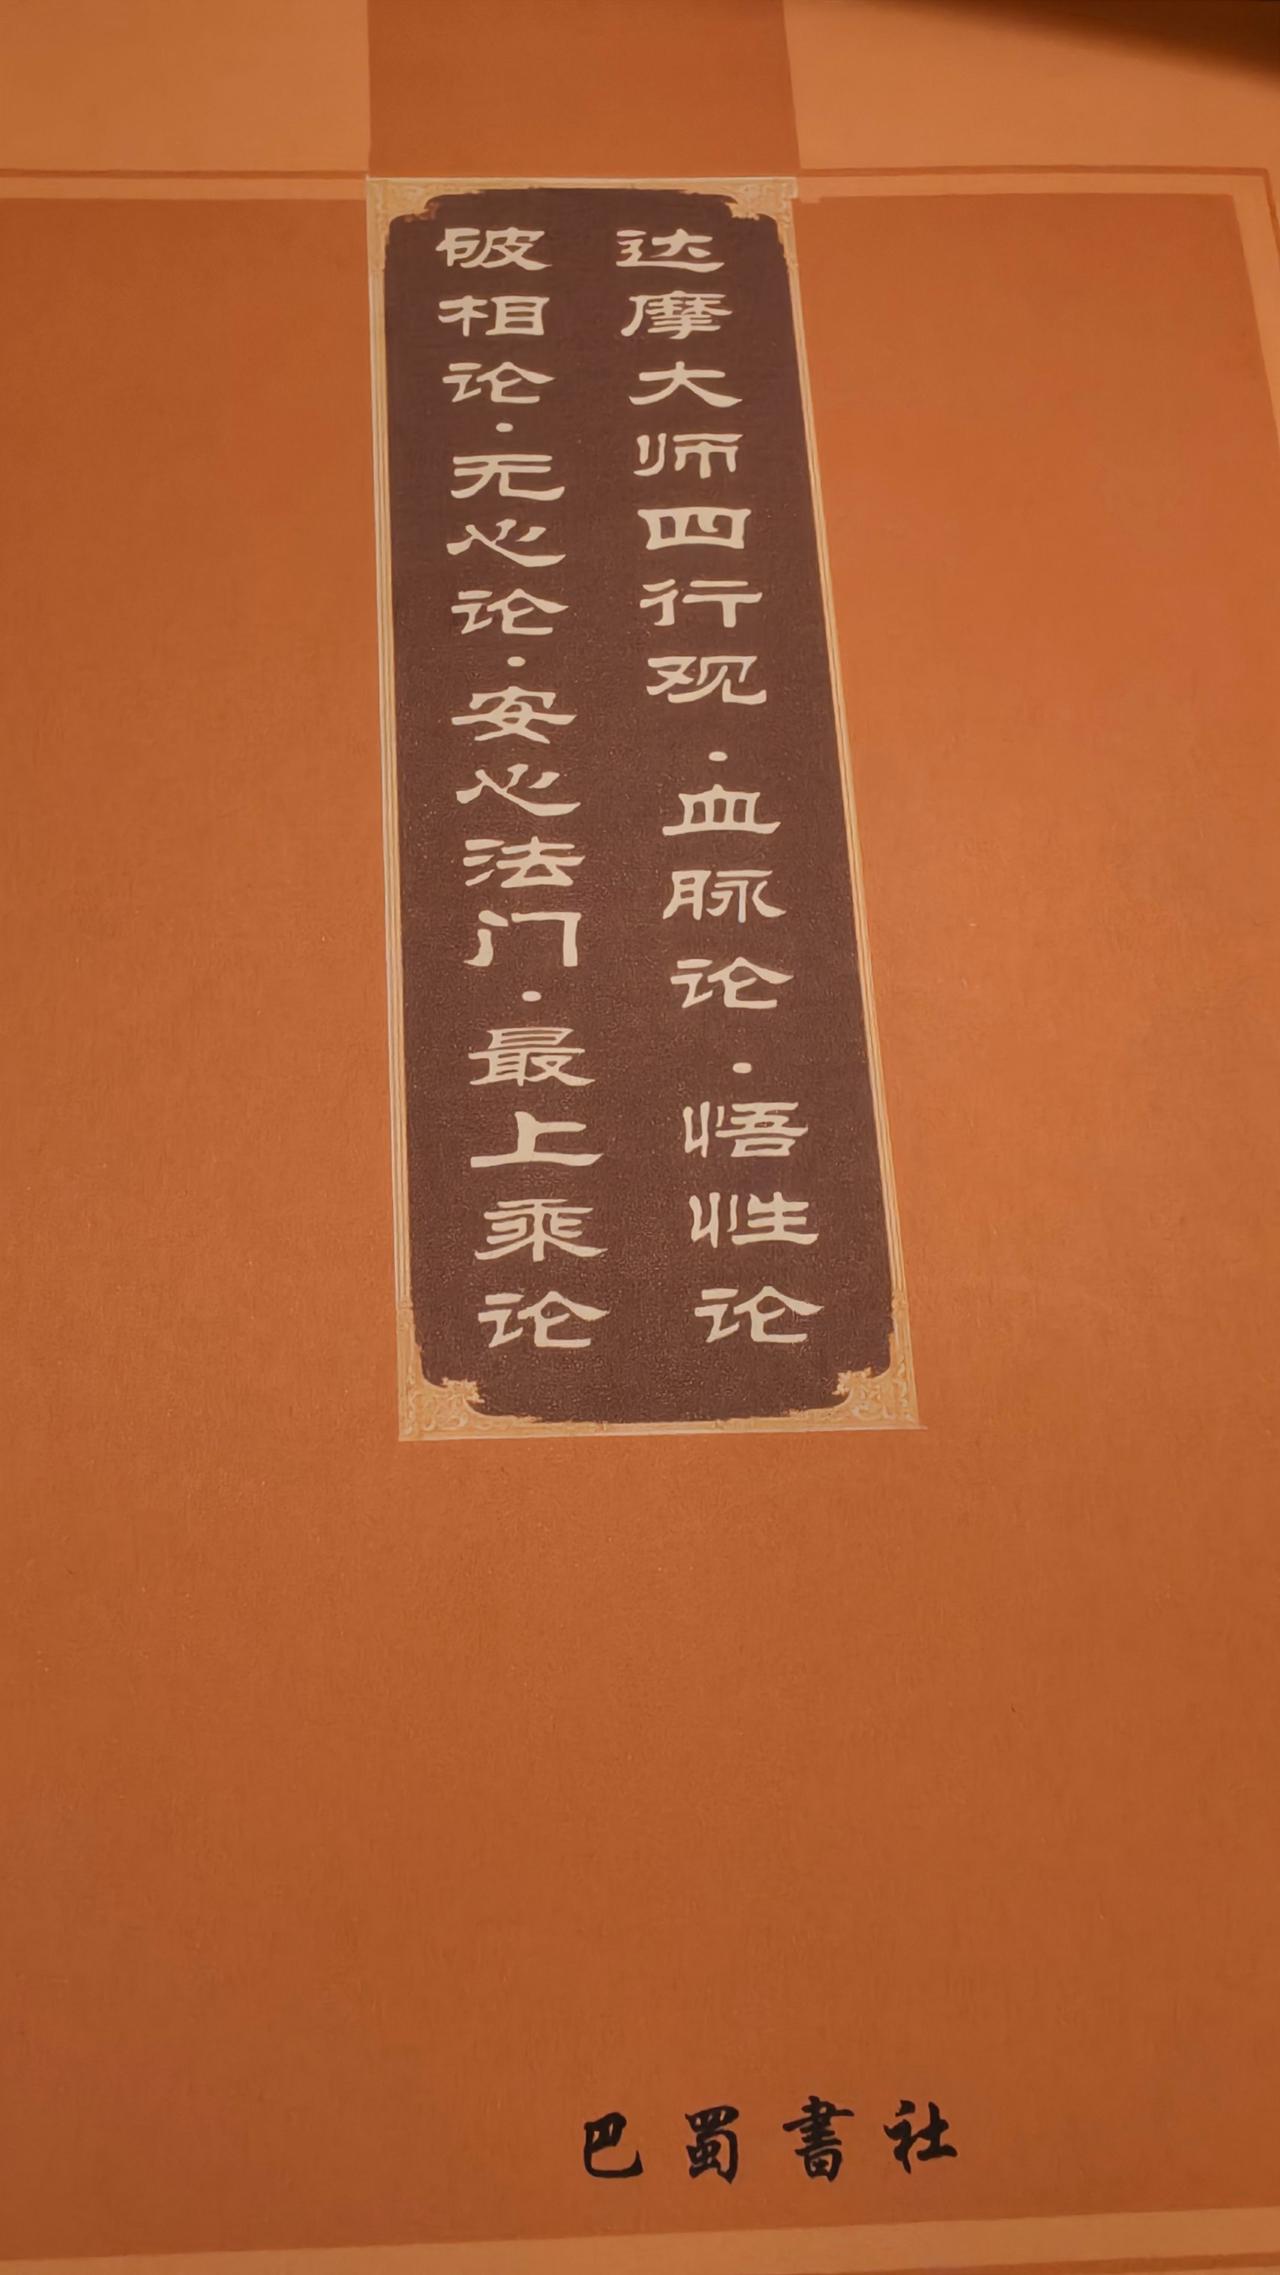 达摩大师四行观·血脉论·悟性论
破相论·无心论·安心法门·最上乘论
巴蜀書社